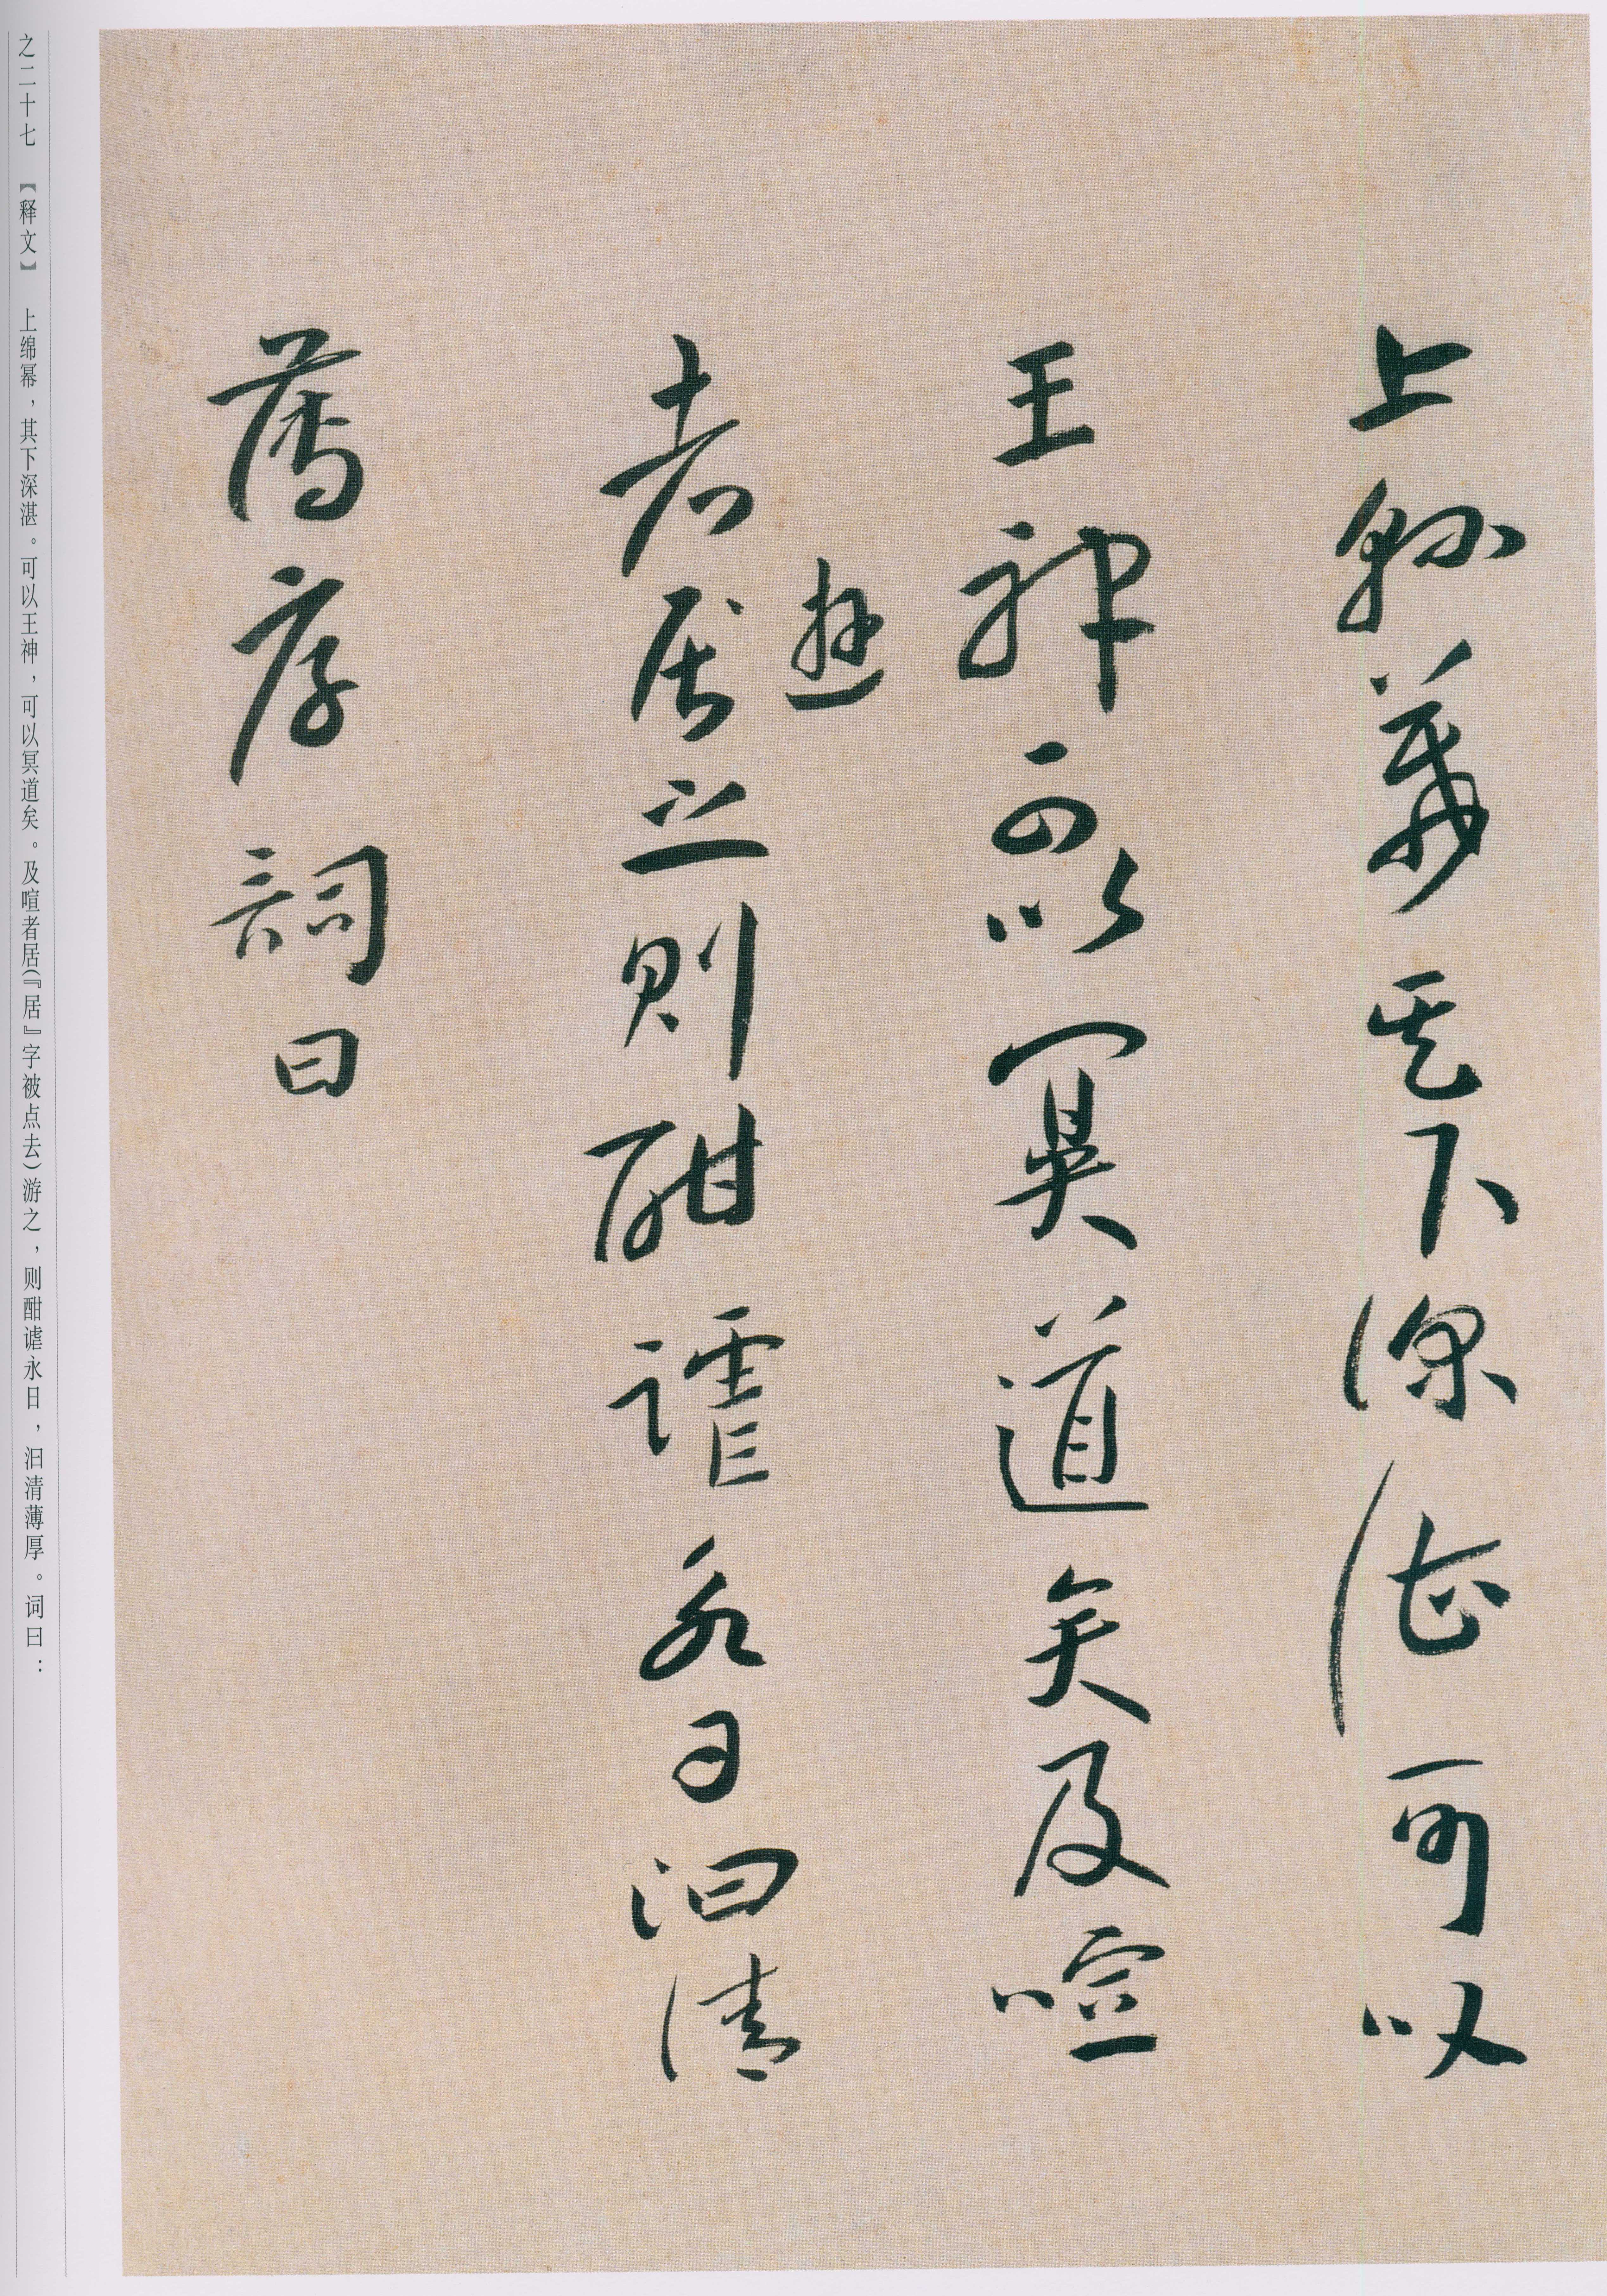 上緜羃其下深湛可以
王神可以冥道矣及喧
者居之則酣謔永日汩清
遊
薄厚詞曰
之二十七 【释文】 上绵幂，其下深湛。可以王神，可以冥道矣。及喧者居(『居』字被点去)游之，则酣谑永日，汩清薄厚。词曰：